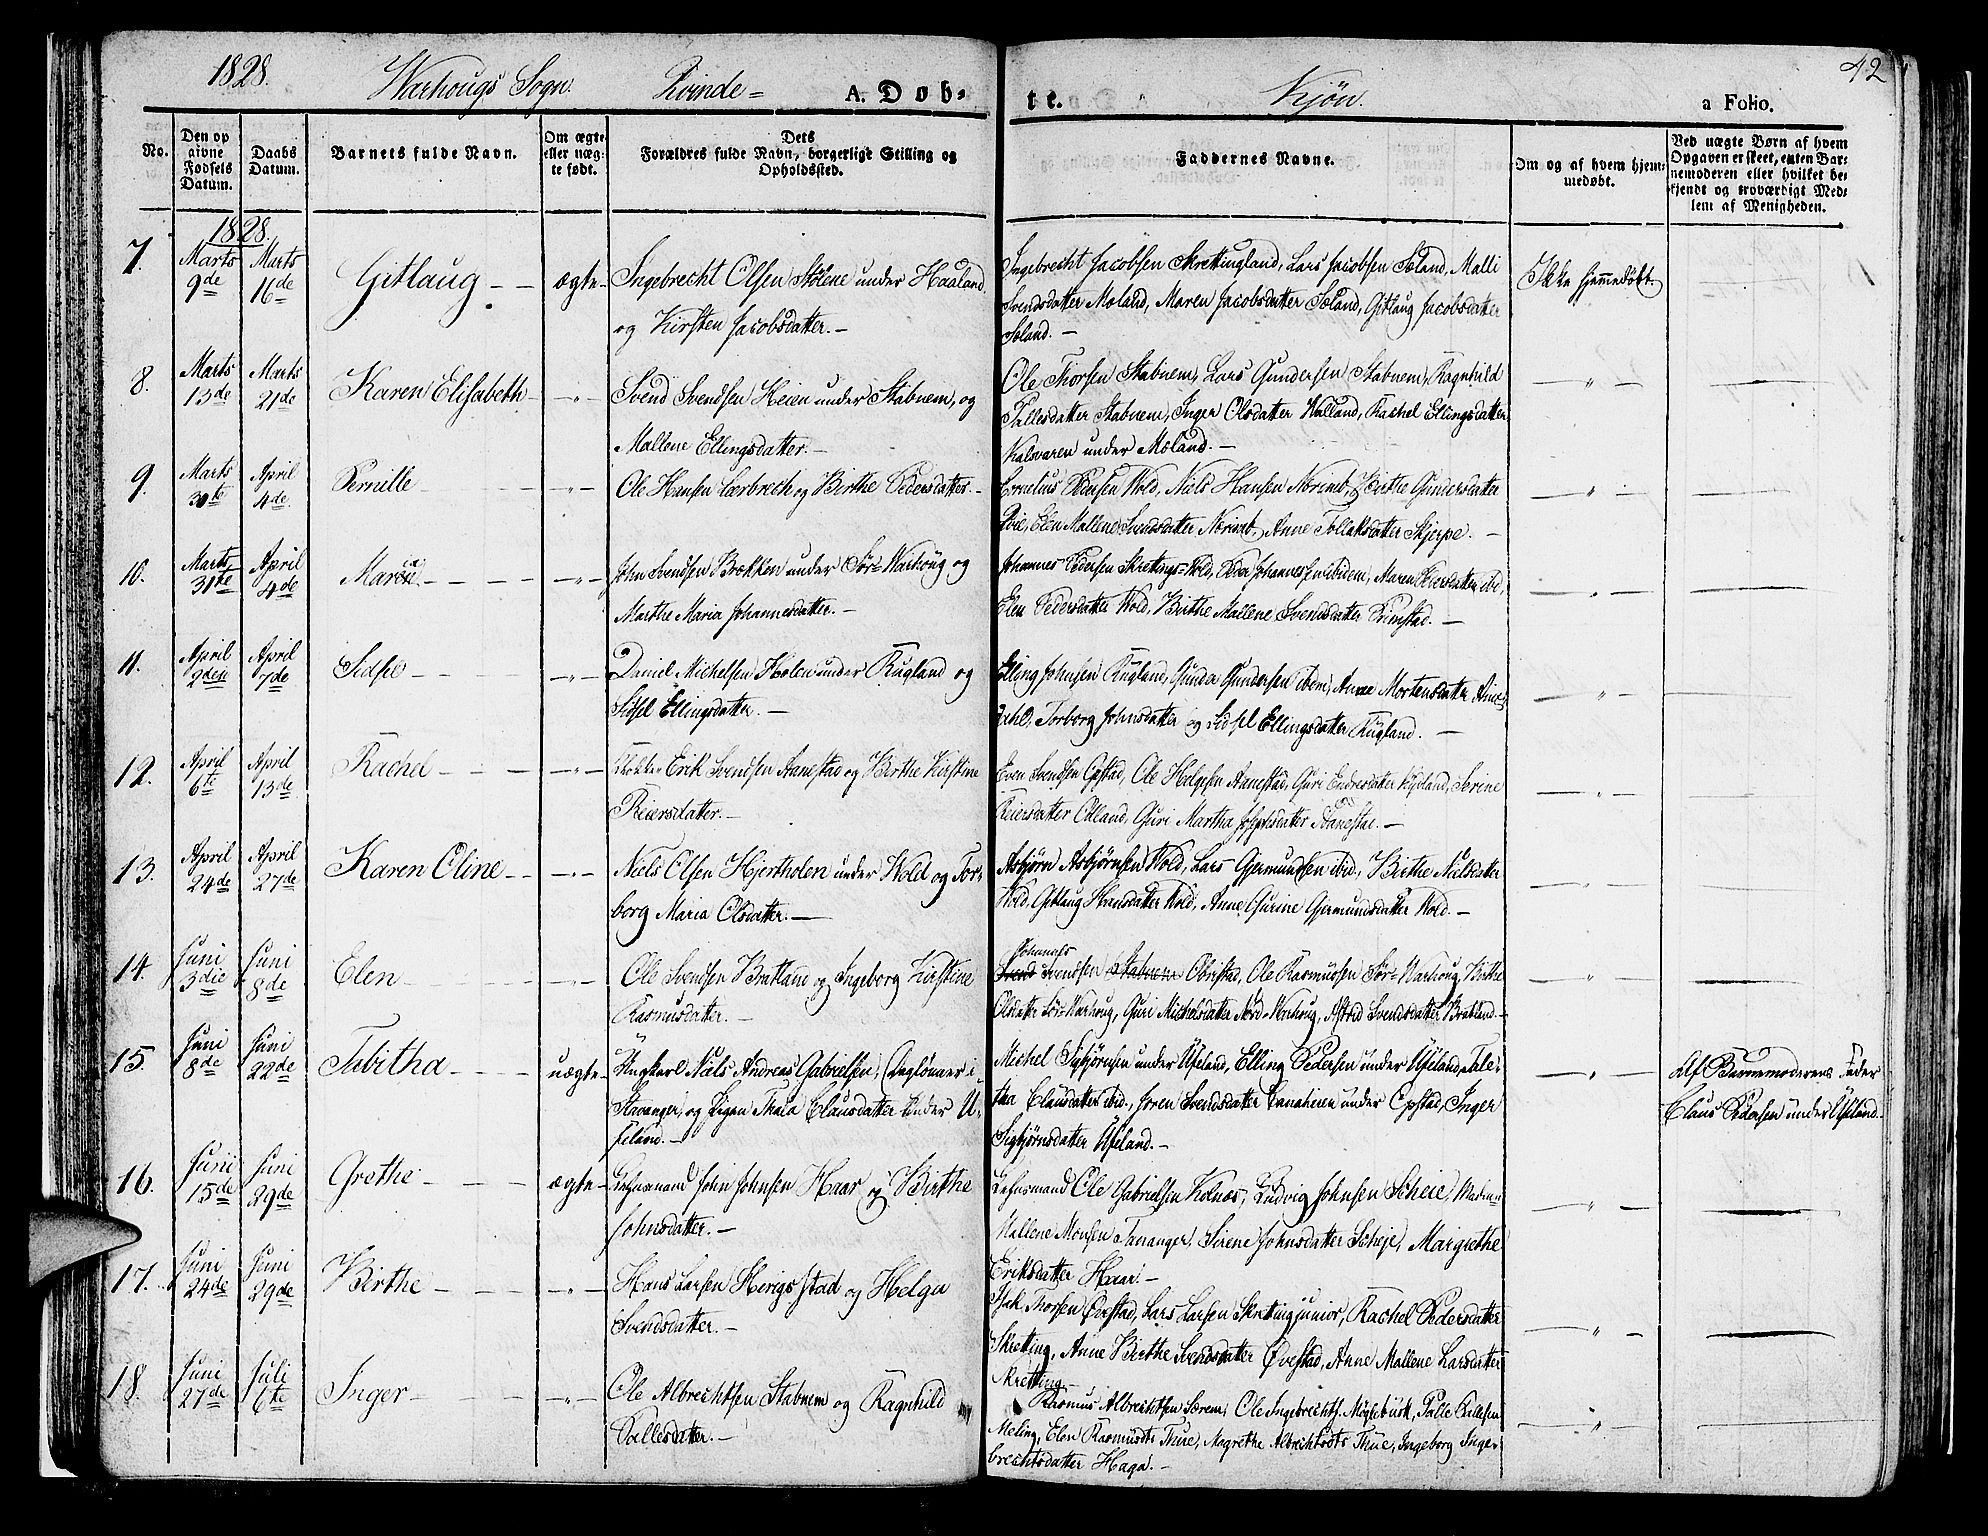 1828. Warhougs Sogn. Qvinde= A. Døb-
te. Kjøn. a Folio. 42
No.
Den op
givne
Fødsels
Datum.
Daabs
Datum.
Barnets fulde Navn.
Om ægte
eller uæg-
te født.
Dets
Forældres fulde Navn, borgerlige Stilling og
Opholdssted.
Faddernes Navne.
Om og af hvem hjem-
medøbt.
Ved uægte Børn af hvem
Opgaven er skeet, enten Bar-
nemoderen eller hvilket be-
kjendt og troværdigt Med-
lem af Menigheden.
1828.
7. Marts 9de Marts 16de Gitlaug ægte
Ingebrecht Olsen Stølene under Haaland
og Kirsten Jacobsdatter.
Ingebrecht Jacobsen Skrettingland, Lars Jacobsen Søland, Malli
Svendsdatter Moland, Maren Jacobsdatter Søland, Gitlaug Jacobsdatter
Søland.
Ikke hjemmedøbt.
8. Marts 13de Marts 21de Karen Elisabeth "
Svend Svendsen Heien under Stabnem, og
Mallene Ellingsdatter.
Ole Thorsen Stabnem, Lars Gundersen Stabnem, Ragnhild
Tallesdatter Stabnem, Inger Olsdatter Walland, Rachel Ellingsdatter
Kalvaren under Moland.
"
9. Marts 30te April 4de. Pernille "
Ole Hansen Lerbrech og Birthe Pedersdatter.
Cornelius Pedersen Wold, Niels Hansen Nærimb, Birthe Gundersdatter
Elen Mallene Svendsdatter Nærimb, Anne Tollaksdatter Skjerpe.
"
10. Marts 31te April 4de Maren "
John Svendsen Brekken under Sør-Warhoug og
Marthe Maria Johannesdatter.
Johannes Pedersen Skrettings-Wold, Peder Johannesen ibidem, Maren Pedersdatter ibi,
Elen Pedersdatter Wold, Birthe Mallene Svendsdatter Grimstad.
"
11. April 2den April 7de Sidsel "
Daniel Michelsen Holen under Rugland og
Sidsel Ellingsdatter.
Elling Johnsen Rugland, Gunder Gundersen ibdm, Anne Mortensdatter
Torborg Johnsdatter og Sidsel Ellingsdatter Rugland.
"
12. April 6te April 13de. Rachel "
Erik Svendsen Aanestad og Birthe Kirstine
Reiersdatter.
Even Svendsen Opstad, Ole Helgesen Aanestad, Guri Endresdatter Rygland, Serine
Reiersdatter Odland, Guri Martha Josephsdatter Aanestad.
"
13. April 24de April 27de Karen Oline "
Niels Olsen Hjertholen under Wold og Tor-
borg Maria Olsdatter.
Asbjørn Asbjørnsen Wold, Lars Gjermundsen ibid., Birthe Nielsdatter
Wold, Gitlaug Hansdatter Wold, Anne Gurine Gjermundsdatter Wold.
"
14. Juni 3die Juni 8de Elen "
Ole Svendsen Bratland og Ingeborg Kirstine
Rasmusdatter.
Johannes
Svend Svendsen Stabnem Obrestad, Ole Rasmussen Sør-Warhoug, Birthe
Olsdatter Sør-Warhoug, Guri Michelsdatter Nord-Warhoug, Astrid Svendsdatter Bratland.
"
15. Juni 8de Juni 22de Tabitha uægte
Ungkarl Niels Andreas Gabrielsen, (Daglønner i
Stavanger) og Pigen Thala Clausdatter under U-
feland.
Michel Sigbjørnsen under Ufeland, Elling Pedersen under Ufeland, Tale-
tha Clausdatter ibid., Joren Svendsdatter Lanaheien under Opstad, Inger
Sigbjørnsdatter Ufeland.
"
Af Barnemoderens Fader
Claus Pedersen under Ufeland.
16. Juni 15de Juni 29de Grethe ægte
Lehnsmand John Johnsen Haar og Birthe
Johnsdatter.
Lehnsmand Ole Gabrielsen Kolnæs, Ludvig Johnsen Scheie, Madm:
Mallene Monsen Tananger, Sirene Johnsdatter Scheje, Margrethe
Eriksdatter Haar.
"
17. Juni 24de Juni 29de Birthe "
Hans Larsen Herigstad og Helga
Svendsdatter.
Isak Thorsen Øvestad, Lars Larsen Skretting junior, Rachel Pedersdatter
Skretting, Anne Birthe Svendsdatter Øvestad, Anne Mallene Larsdatter
Skretting.
"
18. Juni 27de Juli 6te Inger "
Ole Albrechtsen Stabnem og Ragnhild
Tallesdatter.
Rasmus Albrechtsen Særem, Ole Ingebrechts. Møglebust, Talle Tallesen
Meling, Elen Rasmusdtr Thue, Magrethe Albrechtsdtr Thue, Ingeborg Inge-
brechtsdatter Haga.
"